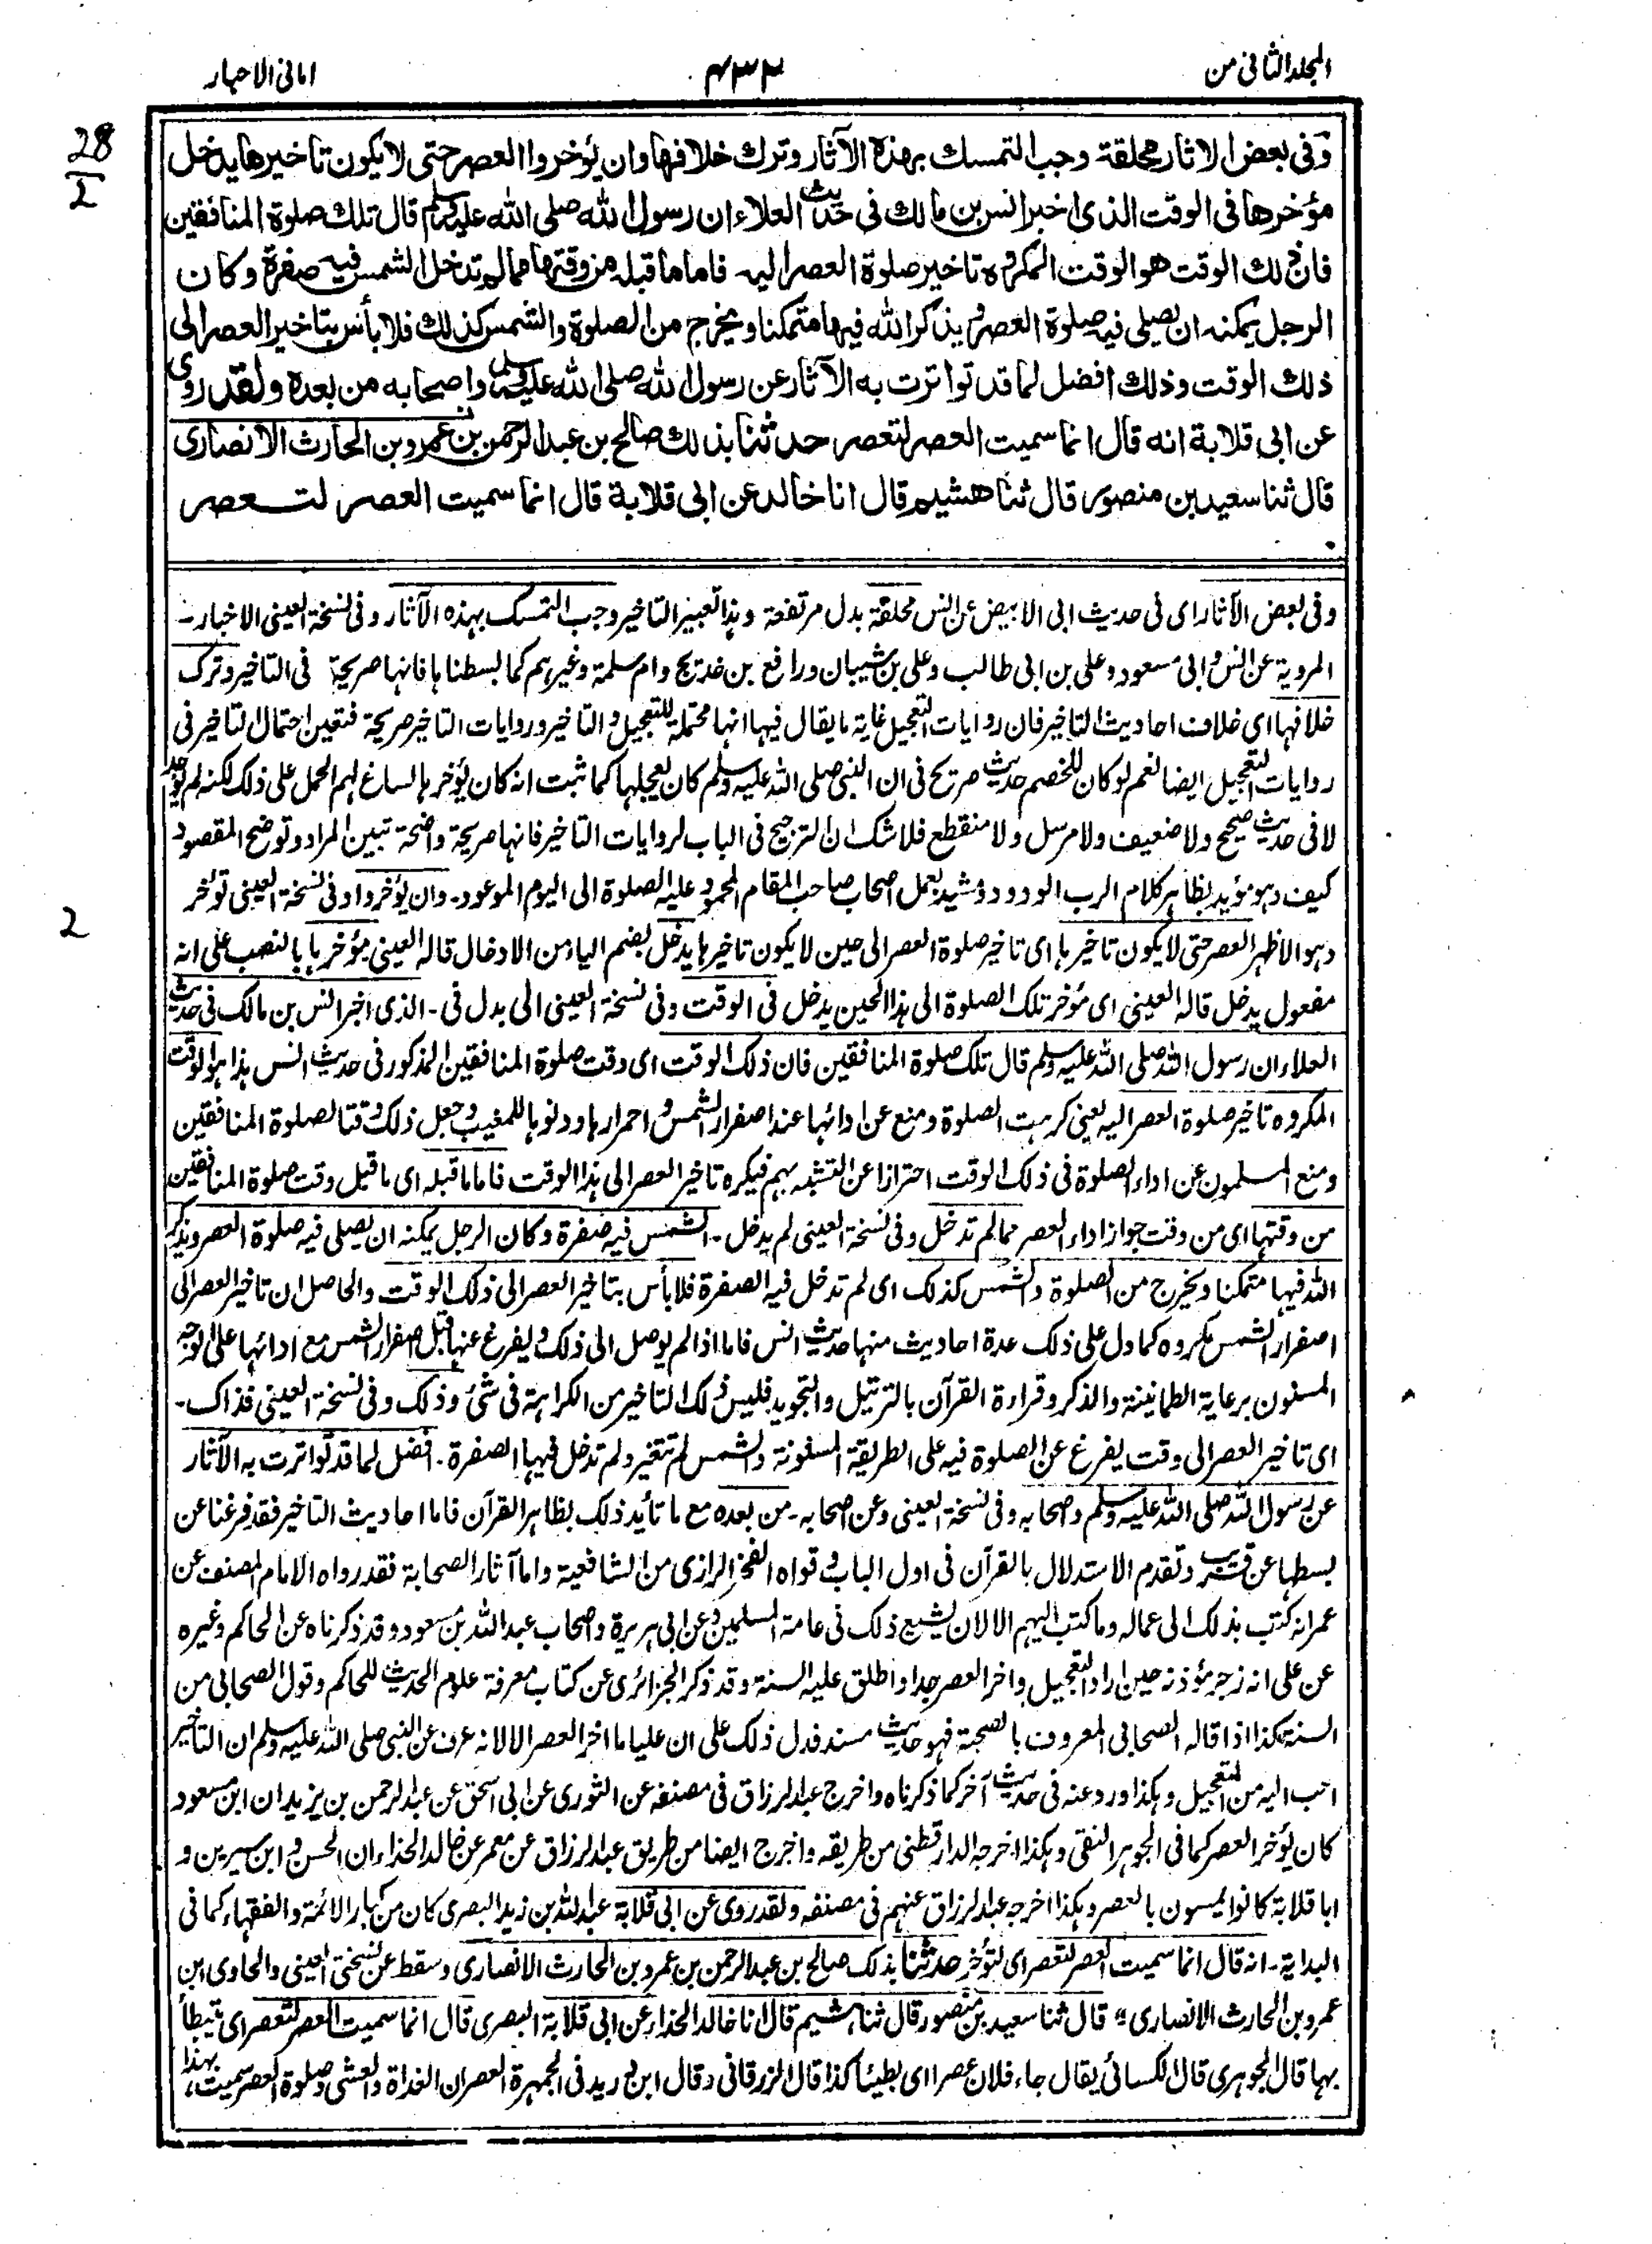 المجلد الثانی من
۴۳۲
امانی الاحبار
28
2
وفی بعض الاثار محلقة وجب التمسك بهذه الآثار وترك خلافها وان یؤخروا العصر حتی لا یكون تاخیرها یدخل
مؤخرها فی الوقت الذی اخبر انس بن مالك فی حدیث العلاء ان رسول الله صلی الله علیه وسلم قال تلك صلوة المنافقین
فان ذلك الوقت هو الوقت المكروه تاخیر صلوة العصر الیه فاما ما قبله من وقتها مما لم تدخل الشمس فیه صفرة وكان
الرجل یمكنه ان یصلی فیه صلوة العصر ویذكر الله فیها متمكنا ویخرج من الصلوة والشمس كذلك فلا بأس بتاخیر العصر الی
ذلك الوقت وذلك افضل لما قد تواترت به الآثار عن رسول الله صلی الله علیه وسلم واصحابه من بعده ولقد روی
عن ابی قلابة انه قال انما سمیت العصر لتعصر حدثنا بذلك صالح بن عبد الرحمن بن عمرو بن الحارث الانصاری
قال ثنا سعید بن منصور قال ثنا هشیم قال انا خالد عن ابی قلابة قال انما سمیت العصر لتعصر
وفی بعض الآثار ای فی حدیث ابی الابیض عن انس محلقة بدل مرتفعة وہذا تعبیر التاخیر وجب التمسک بہذہ الآثار وفی نسخة العینی الاخبار۔
المرویة عن انس وابی مسعود وعلی بن ابی طالب وعلی بن شیبان ورافع بن خدیج وام سلمة وغیرہم کما بسطناہا فانہا صریحة فی التاخیر وترک
خلافہا ای خلاف احادیث التاخیر فان روایات التعجیل غایة ما یقال فیہا انہا محتملة للتعجیل والتاخیر وروایات التاخیر صریحة فتعین احتمال التاخیر فی
روایات التعجیل ایضا نعم لو کان للخصم حدیث صریح فی ان النبی صلی اللہ علیہ وسلم کان یعجلہا کما ثبت انہ کان یؤخرہا لساغ لہم الحمل علی ذلک لکنہ لم یوجد
لا فی حدیث صحیح ولا ضعیف ولا مرسل ولا منقطع فلا شک ان الترجیح فی الباب لروایات التاخیر فانہا صریحة واضحة تبین المراد وتوضح المقصود
کیف وہو مؤید بظاہر کلام الرب الودود ومشید بعمل اصحاب صاحب المقام المحمود علیہ الصلوة الی الیوم الموعود۔ وان یؤخروا وفی نسخة العینی تؤخر
وہو الاظہر العصر حتی لا یکون تاخیرہا ای تاخیر صلوة العصر الی حین لا یکون تاخیرہا یدخل بضم الیاء من الادخال قالہ العینی مؤخرہا بالنصب علی انہ
مفعول یدخل قالہ العینی ای مؤخر تلک الصلوة الی ہذا الحین یدخل فی الوقت وفی نسخة العینی الی بدل فی۔ الذی اخبر انس بن مالک فی حدیث
العلاء ان رسول اللہ صلی اللہ علیہ وسلم قال تلک صلوة المنافقین فان ذلک الوقت ای وقت صلوة المنافقین المذکور فی حدیث انس ہذا ہو الوقت
المکروہ تاخیر صلوة العصر الیہ یعنی کرہت الصلوة ومنع عن ادائہا عند اصفرار الشمس واحمرارہا ودنوہا للمغیب وجعل ذلک وقتا لصلوة المنافقین
ومنع المسلمون عن اداء الصلوة فی ذلک الوقت احترازا عن التشبہ بہم فیکرہ تاخیر العصر الی ہذا الوقت فاما ما قبلہ ای ما قبل وقت صلوة المنافقین
من وقتہا ای من وقت جواز اداء العصر مما لم تدخل وفی نسخة العینی لم یدخل۔ الشمس فیہ صفرة وکان الرجل یمکنہ ان یصلی فیہ صلوة العصر ویذکر
اللہ فیہا متمکنا ویخرج من الصلوة والشمس کذلک ای لم تدخل فیہ الصفرة فلا بأس بتاخیر العصر الی ذلک الوقت والحاصل ان تاخیر العصر الی
اصفرار الشمس مکروہ کما دل علی ذلک عدة احادیث منہا حدیث انس فاما اذا لم یوصل الی ذلک ولیفرغ عنہا قبل اصفرار الشمس مع ادائہا علی الوجہ
المسنون برعایة الطمانینة والذکر وقراءة القرآن بالترتیل والتجوید فلیس ذلک التاخیر من الکراہة فی شئ وذلک وفی نسخة العینی فذاک۔
ای تاخیر العصر الی وقت یفرغ عن الصلوة فیہ علی الطریقة المسنونة والشمس لم تتغیر ولم تدخل فیہا الصفرة۔ افضل لما قد تواترت بہ الآثار
عن رسول اللہ صلی اللہ علیہ وسلم واصحابہ وفی نسخة العینی وعن اصحابہ۔ من بعدہ مع ما تأید ذلک بظاہر القرآن فاما احادیث التاخیر فقد فرغنا عن
بسطہا عن قریب وتقدم الاستدلال بالقرآن فی اول الباب وقواہ الفخر الرازی من الشافعیة واما آثار الصحابة فقد رواہ الامام المصنف عن
عمر انہ کتب بذلک الی عمالہ وما کتب الیہم الا لان یشیع ذلک فی عامة المسلمین وعن ابی ہریرة واصحاب عبد اللہ بن مسعود وقد ذکرناہ عن الحاکم وغیرہ
عن علی انہ زجر مؤذنہ حین اراد التعجیل واخر العصر جدا واطلق علیہ السنة وقد ذکر الجزائری عن کتاب معرفة علوم الحدیث للحاکم وقول الصحابی من
السنة کذا اذا قالہ الصحابی المعروف بالصحبة فہو حدیث مسند فدل ذلک علی ان علیا ما اخر العصر الا لانہ عرف عن النبی صلی اللہ علیہ وسلم ان التاخیر
احب الیہ من التعجیل وہکذا ورد عنہ فی حدیث آخر کما ذکرناہ واخرج عبد الرزاق فی مصنفہ عن الثوری عن ابی اسحق عن عبد الرحمن بن یزید ان ابن مسعود
کان یؤخر العصر کما فی الجوہر النقی وہکذا اخرجہ الدارقطنی من طریقہ واخرج ایضا من طریق عبد الرزاق عن معمر عن خالد الحذاء ان الحسن وابن سیرین و
ابا قلابة کانوا یمسون بالعصر وہکذا اخرجہ عبد الرزاق عنہم فی مصنفہ ولقد روی عن ابی قلابة عبد اللہ بن زید البصری کان من کبار الائمة والفقہاء کما فی
البدایة۔ انہ قال انما سمیت العصر لتعصر ای لتؤخر حدثنا بذلک صالح بن عبد الرحمن بن عمرو بن الحارث الانصاری وسقط عن نسختی العینی والحاوی ابن
عمرو بن الحارث الانصاری" قال ثنا سعید بن منصور قال ثنا ہشیم قال انا خالد الحذاء عن ابی قلابة البصری قال انما سمیت العصر لتعصر ای تبطأ
بہا قال الجوہری قال الکسائی یقال جاء فلان عصرا ای بطیئا کذا قال الزرقانی وقال ابن درید فی الجمہرة العصران الغداة والعشی وصلوة العصر سمیت بہذا